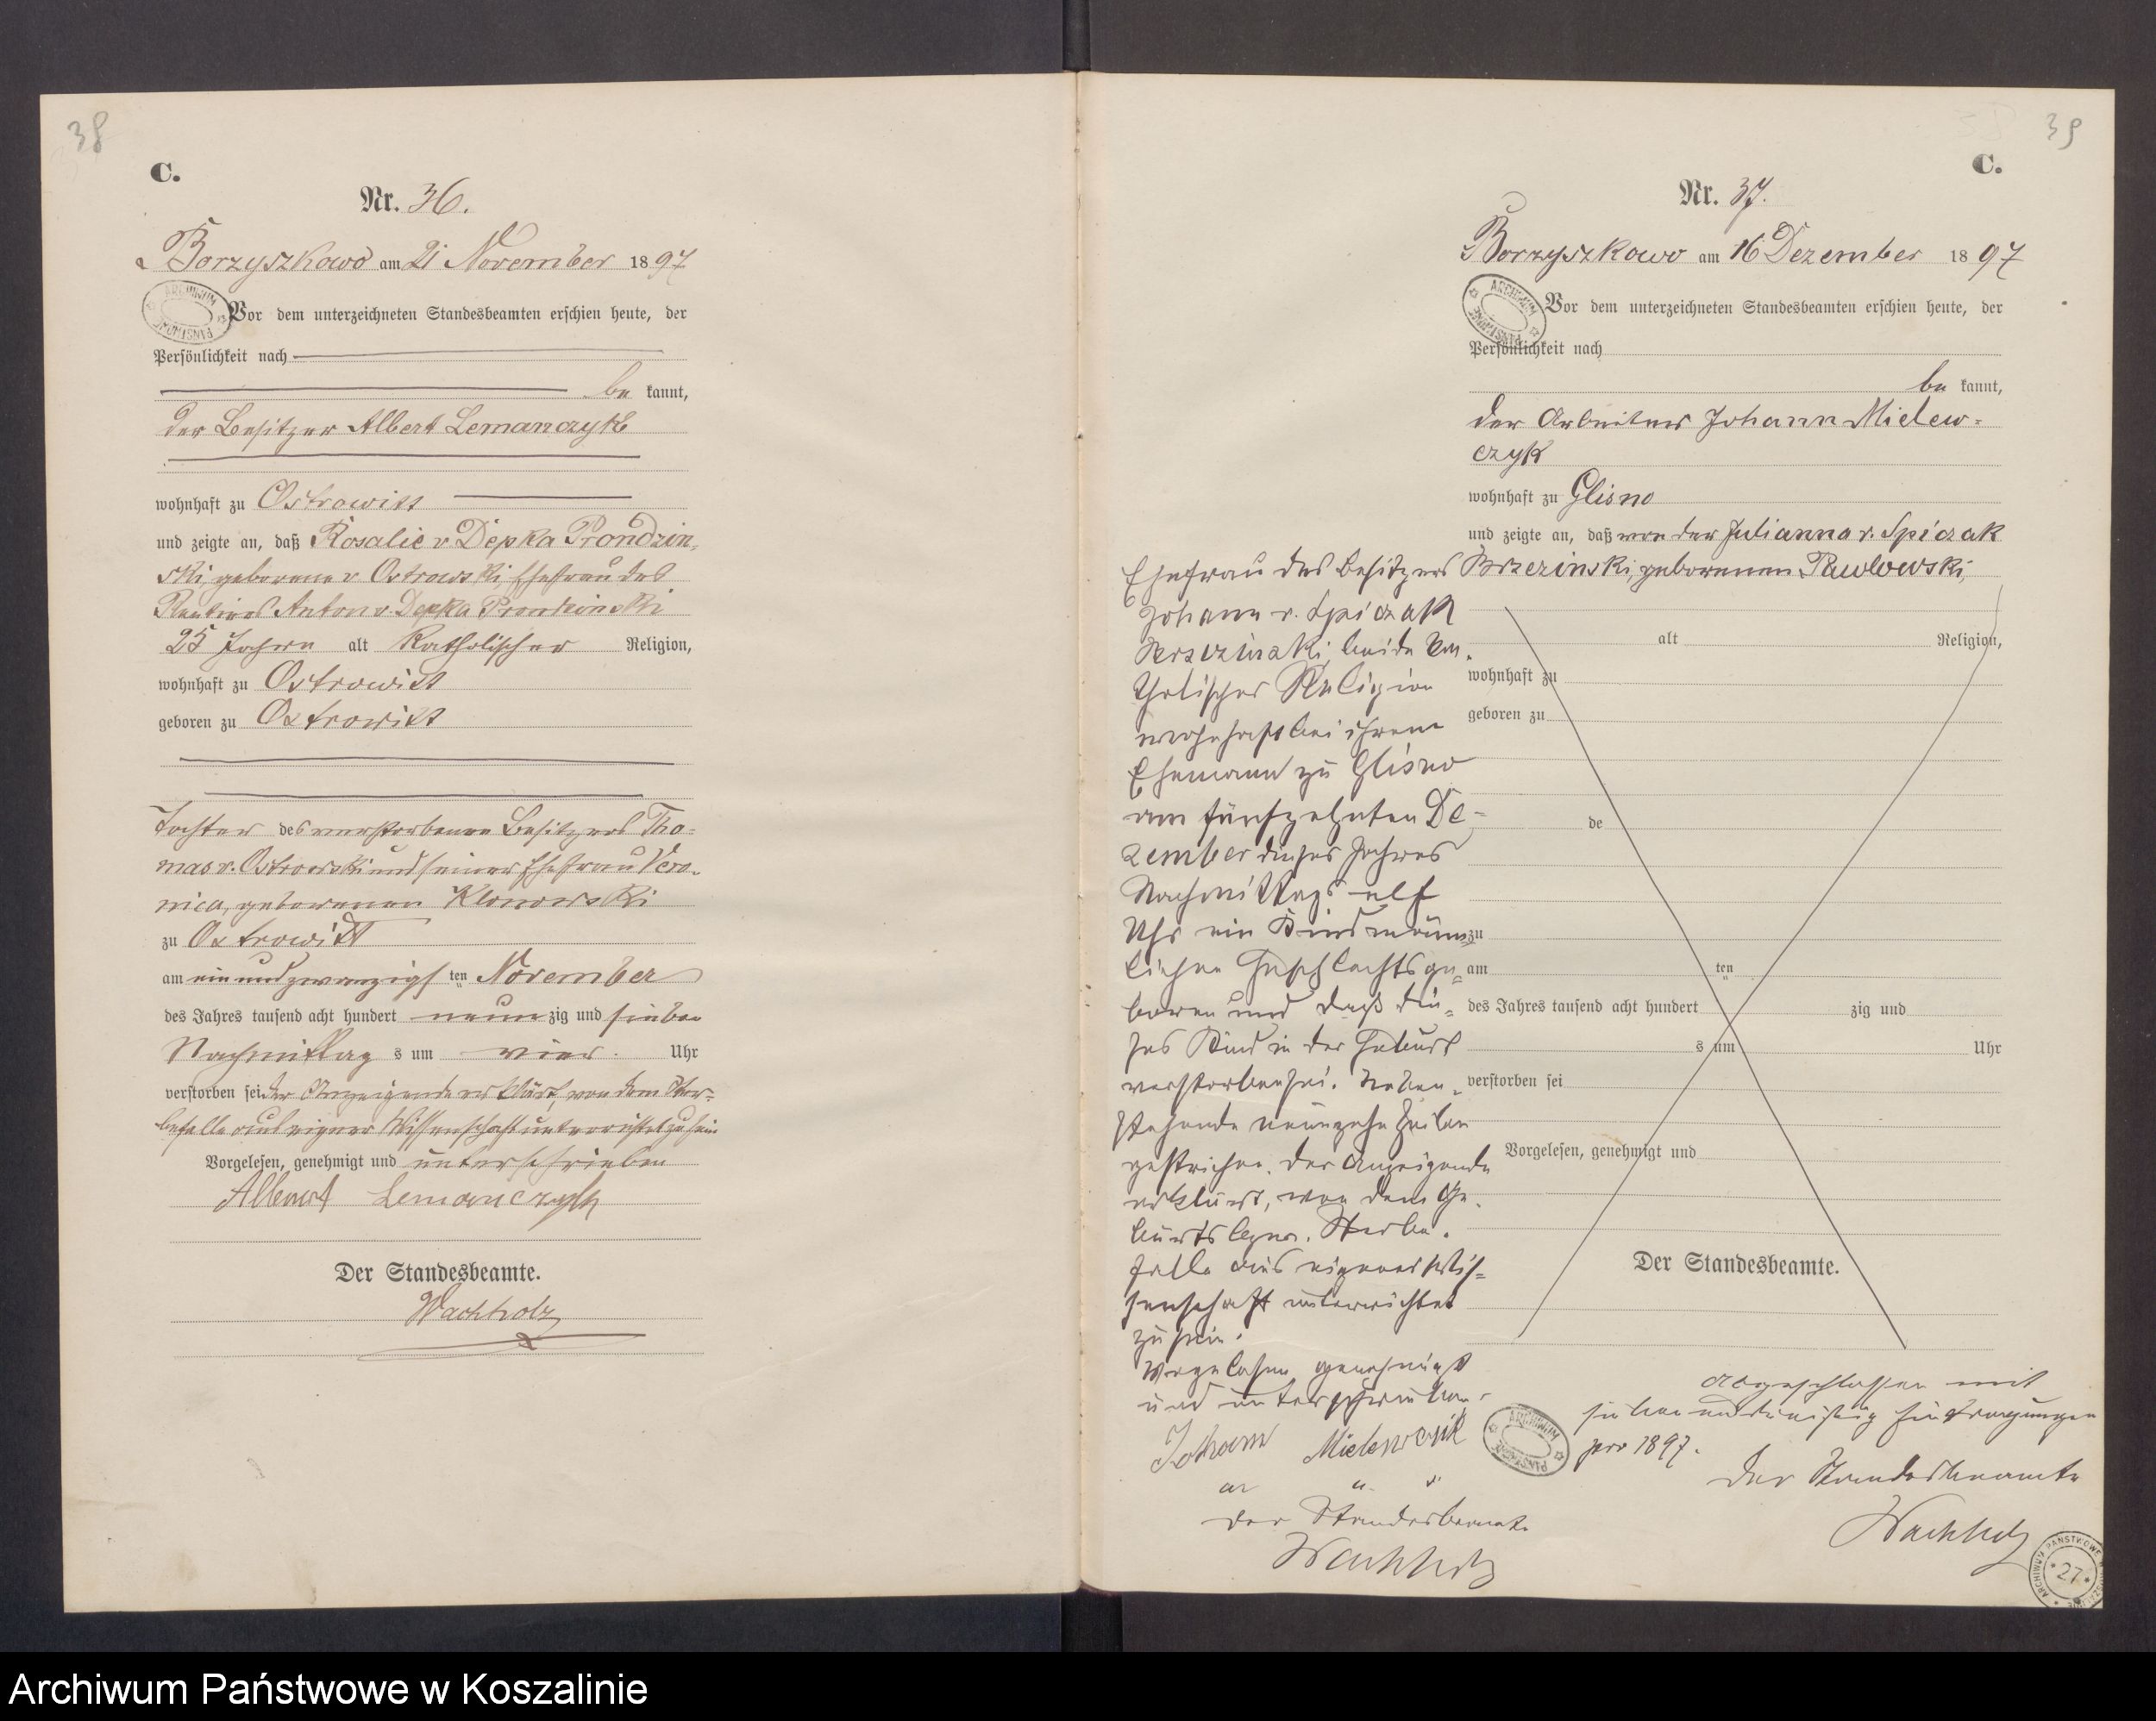 38
C.
Nr. 36.
Borzyszkowo am 21 November 1897
ARCHIWUM PAŃSTWOWE
Vor dem unterzeichneten Standesbeamten erschien heute, der
Persönlichkeit nach
be kannt,
der Besitzer Albert Lemanczyk
wohnhaft zu Ostrowitt
und zeigte an, daß Rosalie v Depka Prondzin-
ski geborene v Ostrowski Ehefrau des
Anton v. Depka Prondzinski
25 Jahre alt katholischer Religion,
wohnhaft zu Ostrowitt
geboren zu Ostrowitt
Tochter des verstorbenen Besitzers Tho-
mas v. Ostrowski und seiner Ehefrau Vero-
nica, geborenen Klonowski
zu Ostrowitt
am einundzwanzigs ten November
des Jahres tausend acht hundert neun zig und sieben
Nachmittag s um vier Uhr
verstorben sei. Der Anzeigende erklärt, von dem Ster-
befalle aus eigener Wissenschaft unterrichtet zu sein
Vorgelesen, genehmigt und unterschrieben
Albert Lemanczyk
Der Standesbeamte.
Wachholz
39
C.
Nr. 37.
Borzyszkowo am 16 Dezember 1897
ARCHIWUM PAŃSTWOWE
Vor dem unterzeichneten Standesbeamten erschien heute, der
Persönlichkeit nach
be kannt,
der Arbeiter Johann Mielew-
czyk
wohnhaft zu Glisno
und zeigte an, daß von der Julianna v. Spiczak
Ehefrau des Besitzers Brzezinski, geborenen Pawlowski,
Johann v. Spiczak
Brzezinski, beide ka-
tholischer Religion
wohnhaft bei ihrem
Ehemann zu Glisno
am fünfzehnten De-
zember dieses Jahres
Nachmittags elf
Uhr ein Kind männ-
lichen Geschlechts ge-
boren und daß die-
ses Kind in der Geburt
verstorben sei. Neben-
stehende neunzehn Zeilen
gestrichen. Der Anzeigende
erklärt, von dem Ge-
burts bezw. Sterbe-
falle aus eigener Wis-
senschaft unterrichtet
zu sein.
Vorgelesen genehmigt
und unterschrieben.
Johann Mielewczik
Der Standesbeamte
Wachholz
alt Religion,
wohnhaft zu
geboren zu
de
zu
am ten
des Jahres tausend acht hundert zig und
s um Uhr
verstorben sei
Vorgelesen, genehmigt und
Der Standesbeamte.
Abgeschlossen mit
siebenunddreißig Eintragungen
pro 1897.
Der Standesbeamte
Wachholz
ARCHIWUM PAŃSTWOWE
27
Archiwum Państwowe w Koszalinie